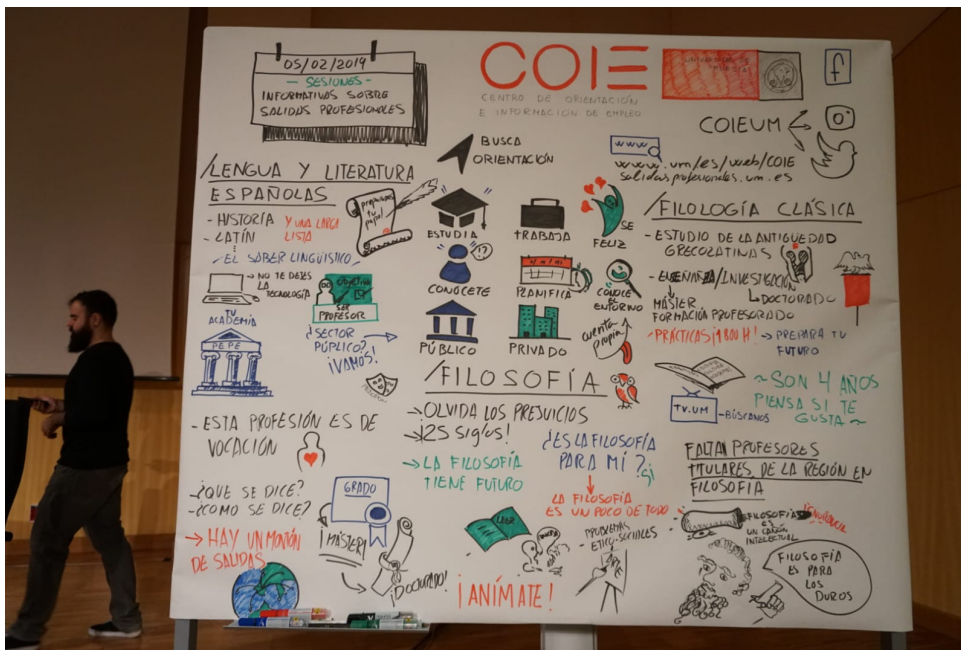 05/02/2019
- SESIONES -
INFORMATIVAS SOBRE
SALIDAS PROFESIONALES
COIE
CENTRO DE ORIENTACIÓN
E INFORMACIÓN DE EMPLEO
f
COIEUM
BUSCA
ORIENTACIÓN
www
www.um/es/web/COIE
salidasprofesionales.um.es
/LENGUA Y LITERATURA
ESPAÑOLAS
- HISTORIA
- LATÍN
Y UNA LARGA
LISTA
EL SABER LINGÜÍSTICO
NO TE DEJES
LA
TECNOLOGÍA
OBJETIVO
SER
PROFESOR
TU
ACADEMIA
PEPE
¿SECTOR
PÚBLICO?
¡VAMOS!
- ESTA PROFESIÓN ES DE
VOCACIÓN
- ¿QUE SE DICE?
- ¿COMO SE DICE?
→ HAY UN MONTÓN
DE SALIDAS
GRADO
¡MÁSTER!
¡DOCTORADO!
ESTUDIA
TRABAJA
SE
FELIZ
CONÓCETE
PLANIFICA
CONOCE EL
ENTORNO
PÚBLICO
PRIVADO
cuenta
propia
/FILOSOFÍA
→ OLVIDA LOS PREJUICIOS
→ ¡25 Siglos!
→ LA FILOSOFÍA
TIENE FUTURO
¿ES LA FILOSOFÍA
PARA MÍ?
Sí
LA FILOSOFÍA
ES UN POCO DE TODO
LEER
PROBLEMAS
ETICO-SOCIALES
ARTE
¡ANÍMATE!
/FILOLOGÍA CLÁSICA
- ESTUDIO DE LA ANTIGUEDAD
GRECOLATINAS
- ENSEÑANZA/INVESTIGACIÓN
DOCTORADO
MÁSTER
FORMACIÓN PROFESORADO
PRÁCTICAS
→ PREPARA TU
FUTURO
TV.UM
- BÚSCANOS
~ SON 4 AÑOS
PIENSA SI TE
GUSTA ~
FALTAN PROFESORES
TITULARES DE LA REGIÓN EN
FILOSOFÍA
FILOSOFÍA
ES
UN CAÑÓN
INTELECTUAL
FILOSOFÍA
ES PARA
LOS
DUROS